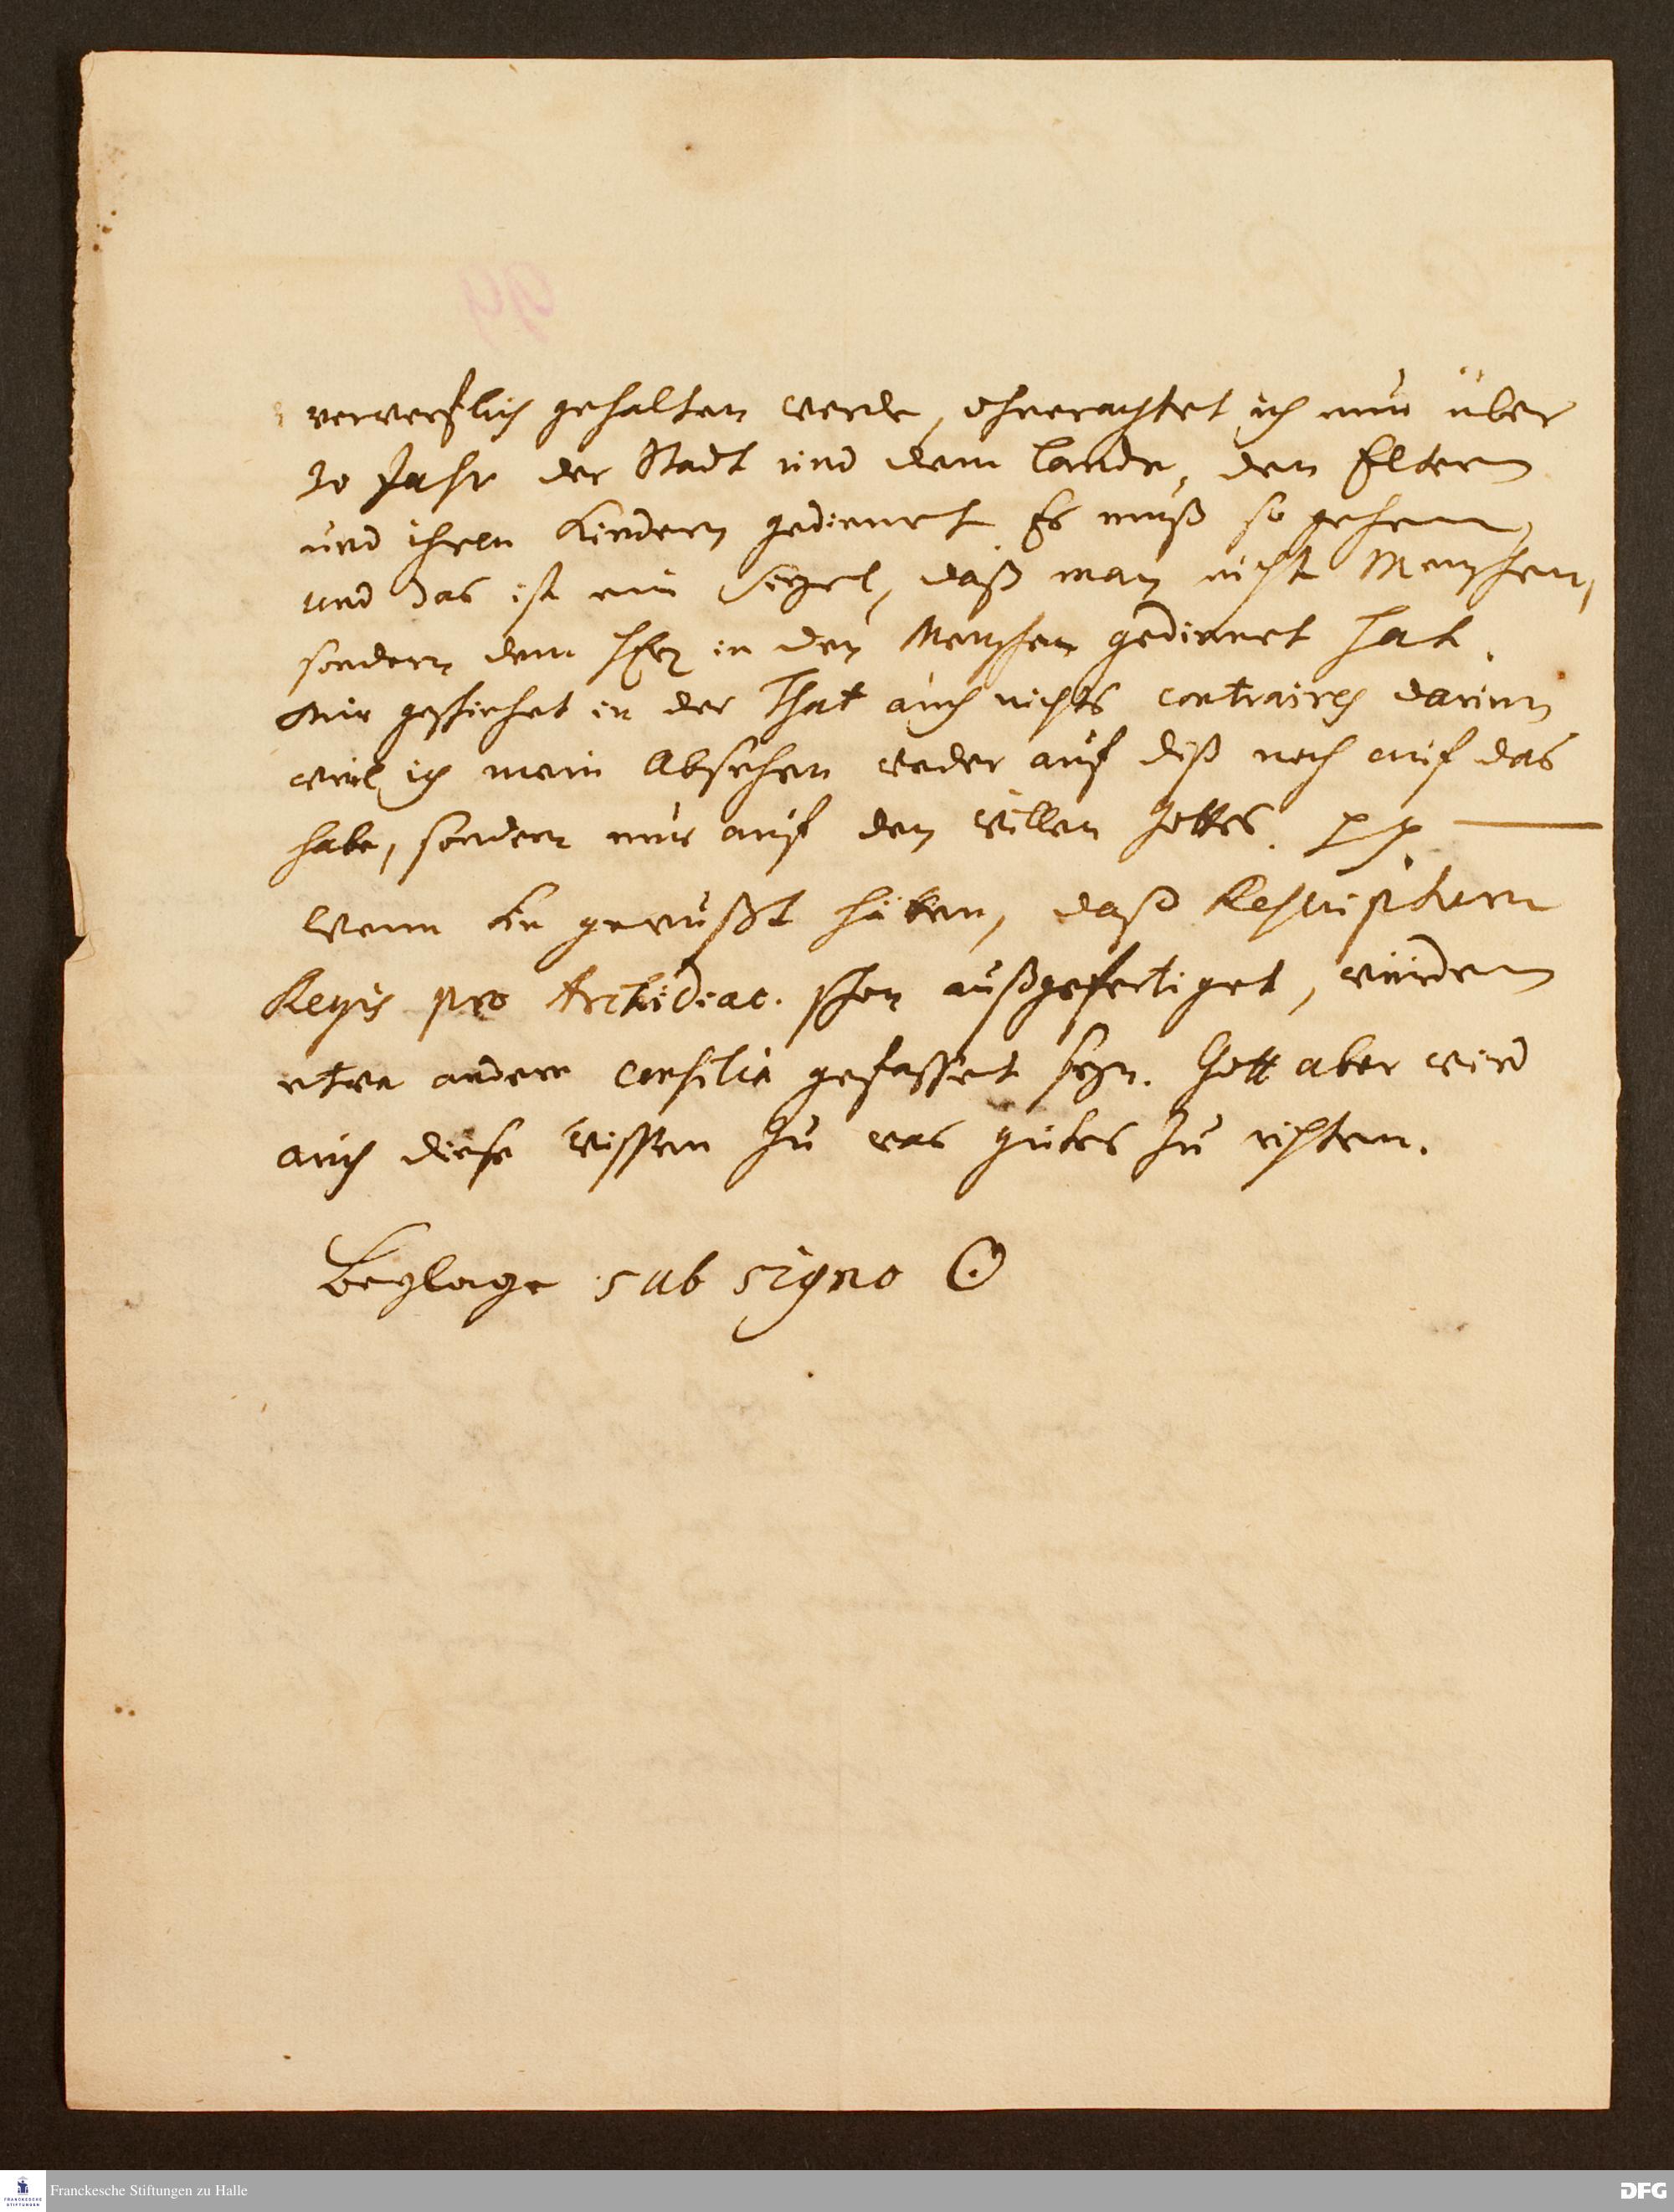 verwerflich gehalten werde, ohnerachtet ich nun über
20 Jahr der Stadt und dem Lande, den Eltern
und ihren Kindern gedienet. Es muß so gehen,
und das ist ein Siegel, daß man nicht Menschen,
sondern dem HErrn in den Menschen gedienet hat.
Mir geschiehet in der That auch nichts contraires darinn
weil ich mein Absehen weder auf diß noch auf das
habe, sondern nur auf den Willen Gottes. pp. —
Wenn Sie gewußt hätten, daß Rescriptum
Regis pro Archidiac. schon außgefertiget, würden
etwa andere Consilia gefasset seyn. Gott aber wird
auch diese wissen zu was gutes zu richten.
Beylage sub signo ☉
Franckesche Stiftungen zu Halle
FRANCKESCHE STIFTUNGEN
DFG